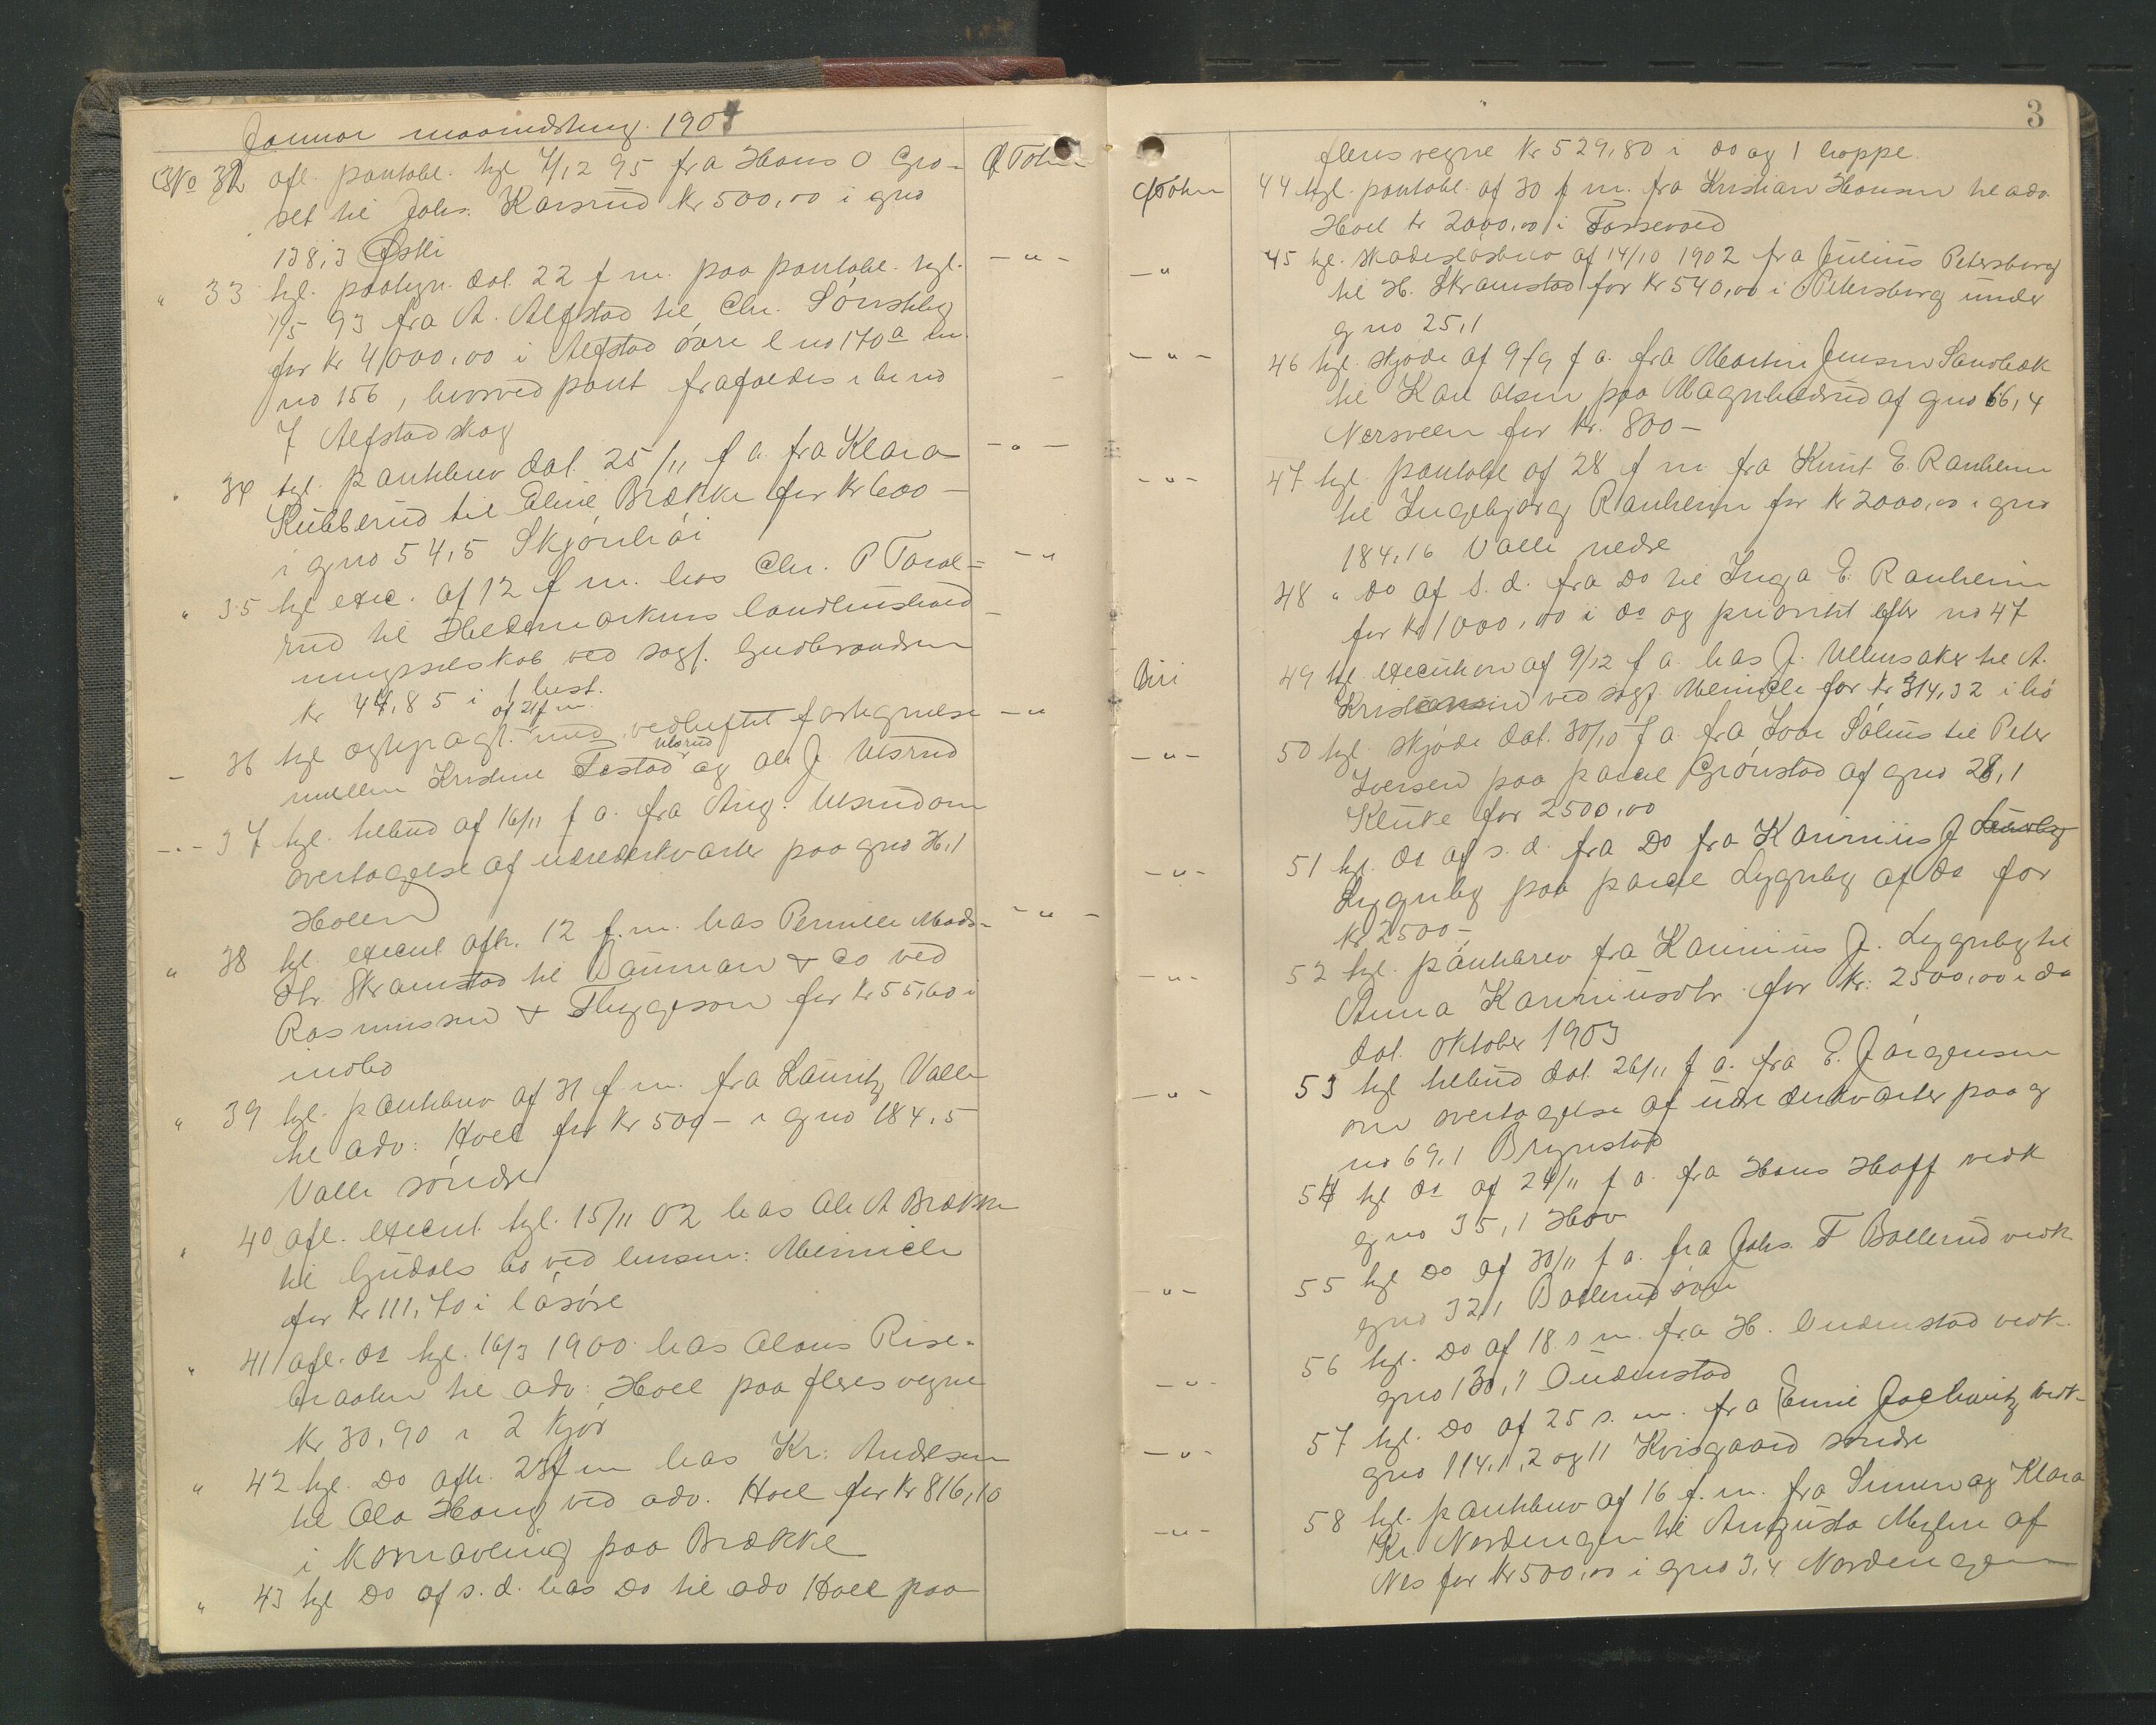 Januar maanedsting. 1904
No 32 afl. pantobl. tgl 4/12 95 fra Hans O Gro- Ø Toten
set til Johs. Karsrud kr 500,00 i gno
138,3 Øski
" 33 tgl. paategn. dat. 22 f m. paa pantobl. tgl. - " -
1/5 93 fra A. Alfstad til Chr. Sönsteby
for kr 4000,00 i Alfstad övre l no 170a m.
no 156, hvorved pant frafaldes i br no
7 Alfstadskog
" 34 tgl. pantebrev dat. 25/11 f a. fra Klara - " -
Kubberud til Eline Brække for kr 600 -
i gno 54,5 Skjönhöi
" 35 tgl exec. af 12 f m. hos Chr. P Taral= - "
rud til Hedemarkens landhushold-
ningsselskab ved sagf. Gudbrandsen
kr 44,85 i 1 hest.
af 21 f m.
- 36 tgl ogtepagt. med vedheftet fastegnelse - "
Ulsrud
mellem Kristine Fostad og Ole J Ulsrud
- " - 37 tgl. tilbud af 16/11 f a. fra Aug. Ulsrud om
overtagelse af udrederkvarter paa gno 31,1
Holen
" 38 tgl. execut afh. 12 f. m. hos Pernille Mads- - " -
dtr Skramstad til Bauman & Co ved
Rasmussen & Thygeson for kr 55,60 i
indbo
" 39 tgl. pantebrev af 31 f m. fra Lauritz Valle
til adv: Hoel for kr 500 - i gno 184,5
Valle söndre
" 40 afl. execut. tgl. 15/11 02 hos Ole A Brække
til Gudals bo ved lensm: Meinicke
for kr 111,70 i lösöre
" 41 afl. do tgl. 16/3 1900 hos Olaus Rise-
braaten til adv: Hoel paa fleres vegne
kr 30,90 i 2 kjör
" 42 tgl. Do afh. 23 f m hos Kr: Andresen
til Ola Haug ved adv. Hoel for kr 816,10
i kornavling paa Brække
" 43 tgl Do af s. d. hos Do til adv Hoel paa
3
fleres vegne kr 529,80 i do og 1 hoppe.
Ø Toten 44 tgl. pantobl. af 30 f m. fra Kristian Hansen til adv.
Hoel kr 2000,00 i Fossevold
- " 45 tgl. skadeslösbrev af 14/10 1902 fra Julius Petersborg
til H. Skramstad for kr 540,00 i Petersborg under
g no 25,1
- " - 46 tgl. skjöde af 9/9 f a. fra Martin Jensen Sandbæk
til Karl Olsen paa Magnhildrud af gno 66,4
Nersveen for kr. 800 -
- " - 47 tgl. pantobl af 28 f m fra Knut E. Ranheim
til Ingebjörg Ranheim for kr 2000,00 i gno
184,16 Valle nedre
48 " do af s. d. fra Do til Inga E. Ranheim
for kr 1000,00 i do og prioritet efter no 47
Biri 49 tgl. execution af 9/12 f a. hos J. Ullensaker til A.
Kristiansen ved sagf. Meinicke for kr 314,32 i hö
- " - 50 tgl. skjöde dat. 30/10 f a. fra Iver Sölius til Peter
Iversen paa parcel Grönstad af gno 28,1
Kluke for 2500,00
- " - 51 tgl. do af s. d. fra Do fra Karinius J
Lygnby paa parcel Lygnby af do for
kr 2500 -
- " - 52 tgl. pantebrev fra Karinius J. Lygnby til
Anna Kariniusdtr. for kr: 2500,00 i do
dat. oktober 1903
- " - 53 tgl tilbud dat. 26/11 f a. fra E. Jörgensen
om overtagelse af udrederkvarter paa g
no 69,1 Brynstad
54 tgl do af 24/11 f a. fra Hans Hoff vedk
gno 35,1 Hov
- " - 55 tgl Do af 30/11 f a. fra Johs. T Bollerud vedk
gno 32,1 Bollerud övre
56 tgl. Do af 18. s m. fra H. Oudenstad vedk.
- " - gno 130,1 Oudenstad
57 tgl. Do af 25 s. m. fra Emil vedk-
- " - gno 114,1,2 og 11 Kvisgaard söndre
58 tgl. pantebrev af 16 f. m. fra Simen og Klara
- " - Kr. Nordengen til Augusta Myhre af
Nes for kr 500,00 i gno 3,4 Nordengen